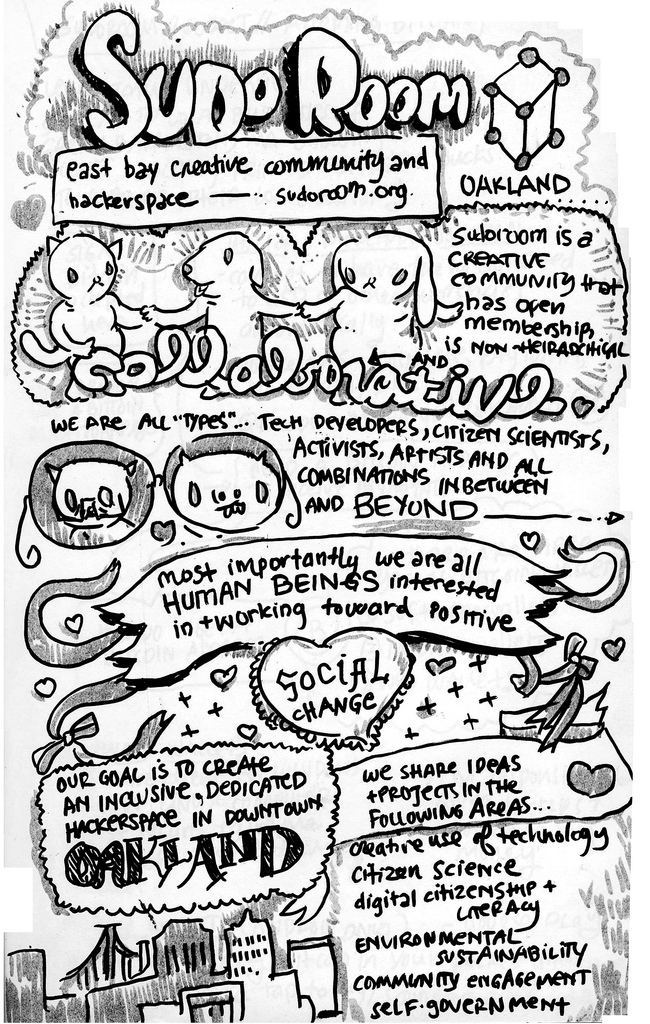 SUDO ROOM
east bay creative community and
hackerspace —— sudoroom.org
OAKLAND
sudoroom is a
CREATIVE
community that
has open
membership,
is NON-HEIRADCHICAL
AND
collaborative.
WE ARE ALL "TYPES"... TECH DEVELOPERS, CITIZEN SCIENTISTS,
ACTIVISTS, ARTISTS AND ALL
COMBINATIONS IN BETWEEN
AND BEYOND
most importantly we are all
HUMAN BEINGS interested
in + working toward positive
SOCIAL
CHANGE
OUR GOAL IS TO CREATE
AN INCLUSIVE, DEDICATED
HACKERSPACE IN DOWNTOWN
OAKLAND
WE SHARE IDEAS
+PROJECTS IN THE
FOLLOWING AREAS...
creative use of technology
Citizen Science
digital citizenship +
LITERACY
ENVIRONMENTAL
SUSTAINABILITY
COMMUNITY ENGAGEMENT
SELF-GOVERNMENT